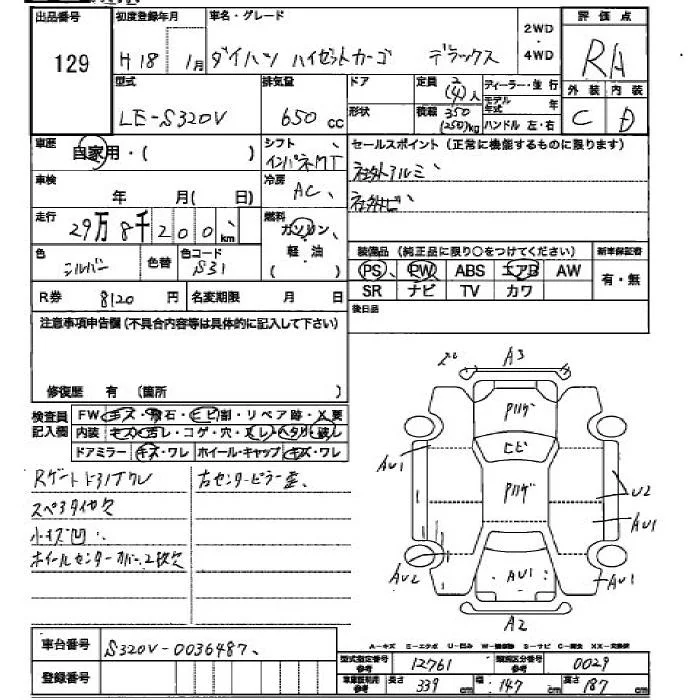 出品番号 初度登録年月 車名・グレード 2WD・4WD 評価点
129 H18 1月 ダイハツ ハイゼットカーゴ デラックス RA
型式 排気量 ドア 定員 2(4)人 ディーラー・並行 外装 内装
LE-S320V 650cc 形状 積載 350(250)kg モデル年式 年 ハンドル 左・右 C D
車歴 自家用・( ) シフト インパネMT セールスポイント(正常に機能するものに限ります)
車検 年 月( 日) 冷房 AC 社外アルミ
社外ナビ
走行 29万8千200km 燃料 ガソリン・軽油 ( )
色 シルバー 色替 色コード S31
装備品(純正品に限り○をつけてください) 新車保証書
PS PW ABS エアB AW 有・無
SR ナビ TV カワ
R券 8120円 名変期限 月 日 後日品
注意事項申告欄(不具合内容等は具体的に記入して下さい)
修復歴 有 (箇所 )
検査員記入欄 FW キズ・飛石・ヒビ割・リペア跡・X要
内装 キズ・汚レ・コゲ・穴・スレ・ヘタリ・破レ
ドアミラー キズ・ワレ ホイール・キャップ キズ・ワレ
スペアタイヤ欠
小キズ凹
ホイールセンターカバー2枚欠
右センターピラー歪
A3
Pハゲ
ヒビ
AU1
Pハゲ
U2
AU1
AU2
AU1
AU1
A2
車台番号 S320V-0036487
登録番号
A-キズ E-エクボ U-凹み W-補修跡 S-サビ C-腐食 XX-交換済
型式指定番号 参考 12761 類別区分番号 参考 0029
車庫証明用参考 長さ 339cm 幅 147cm 高さ 187cm